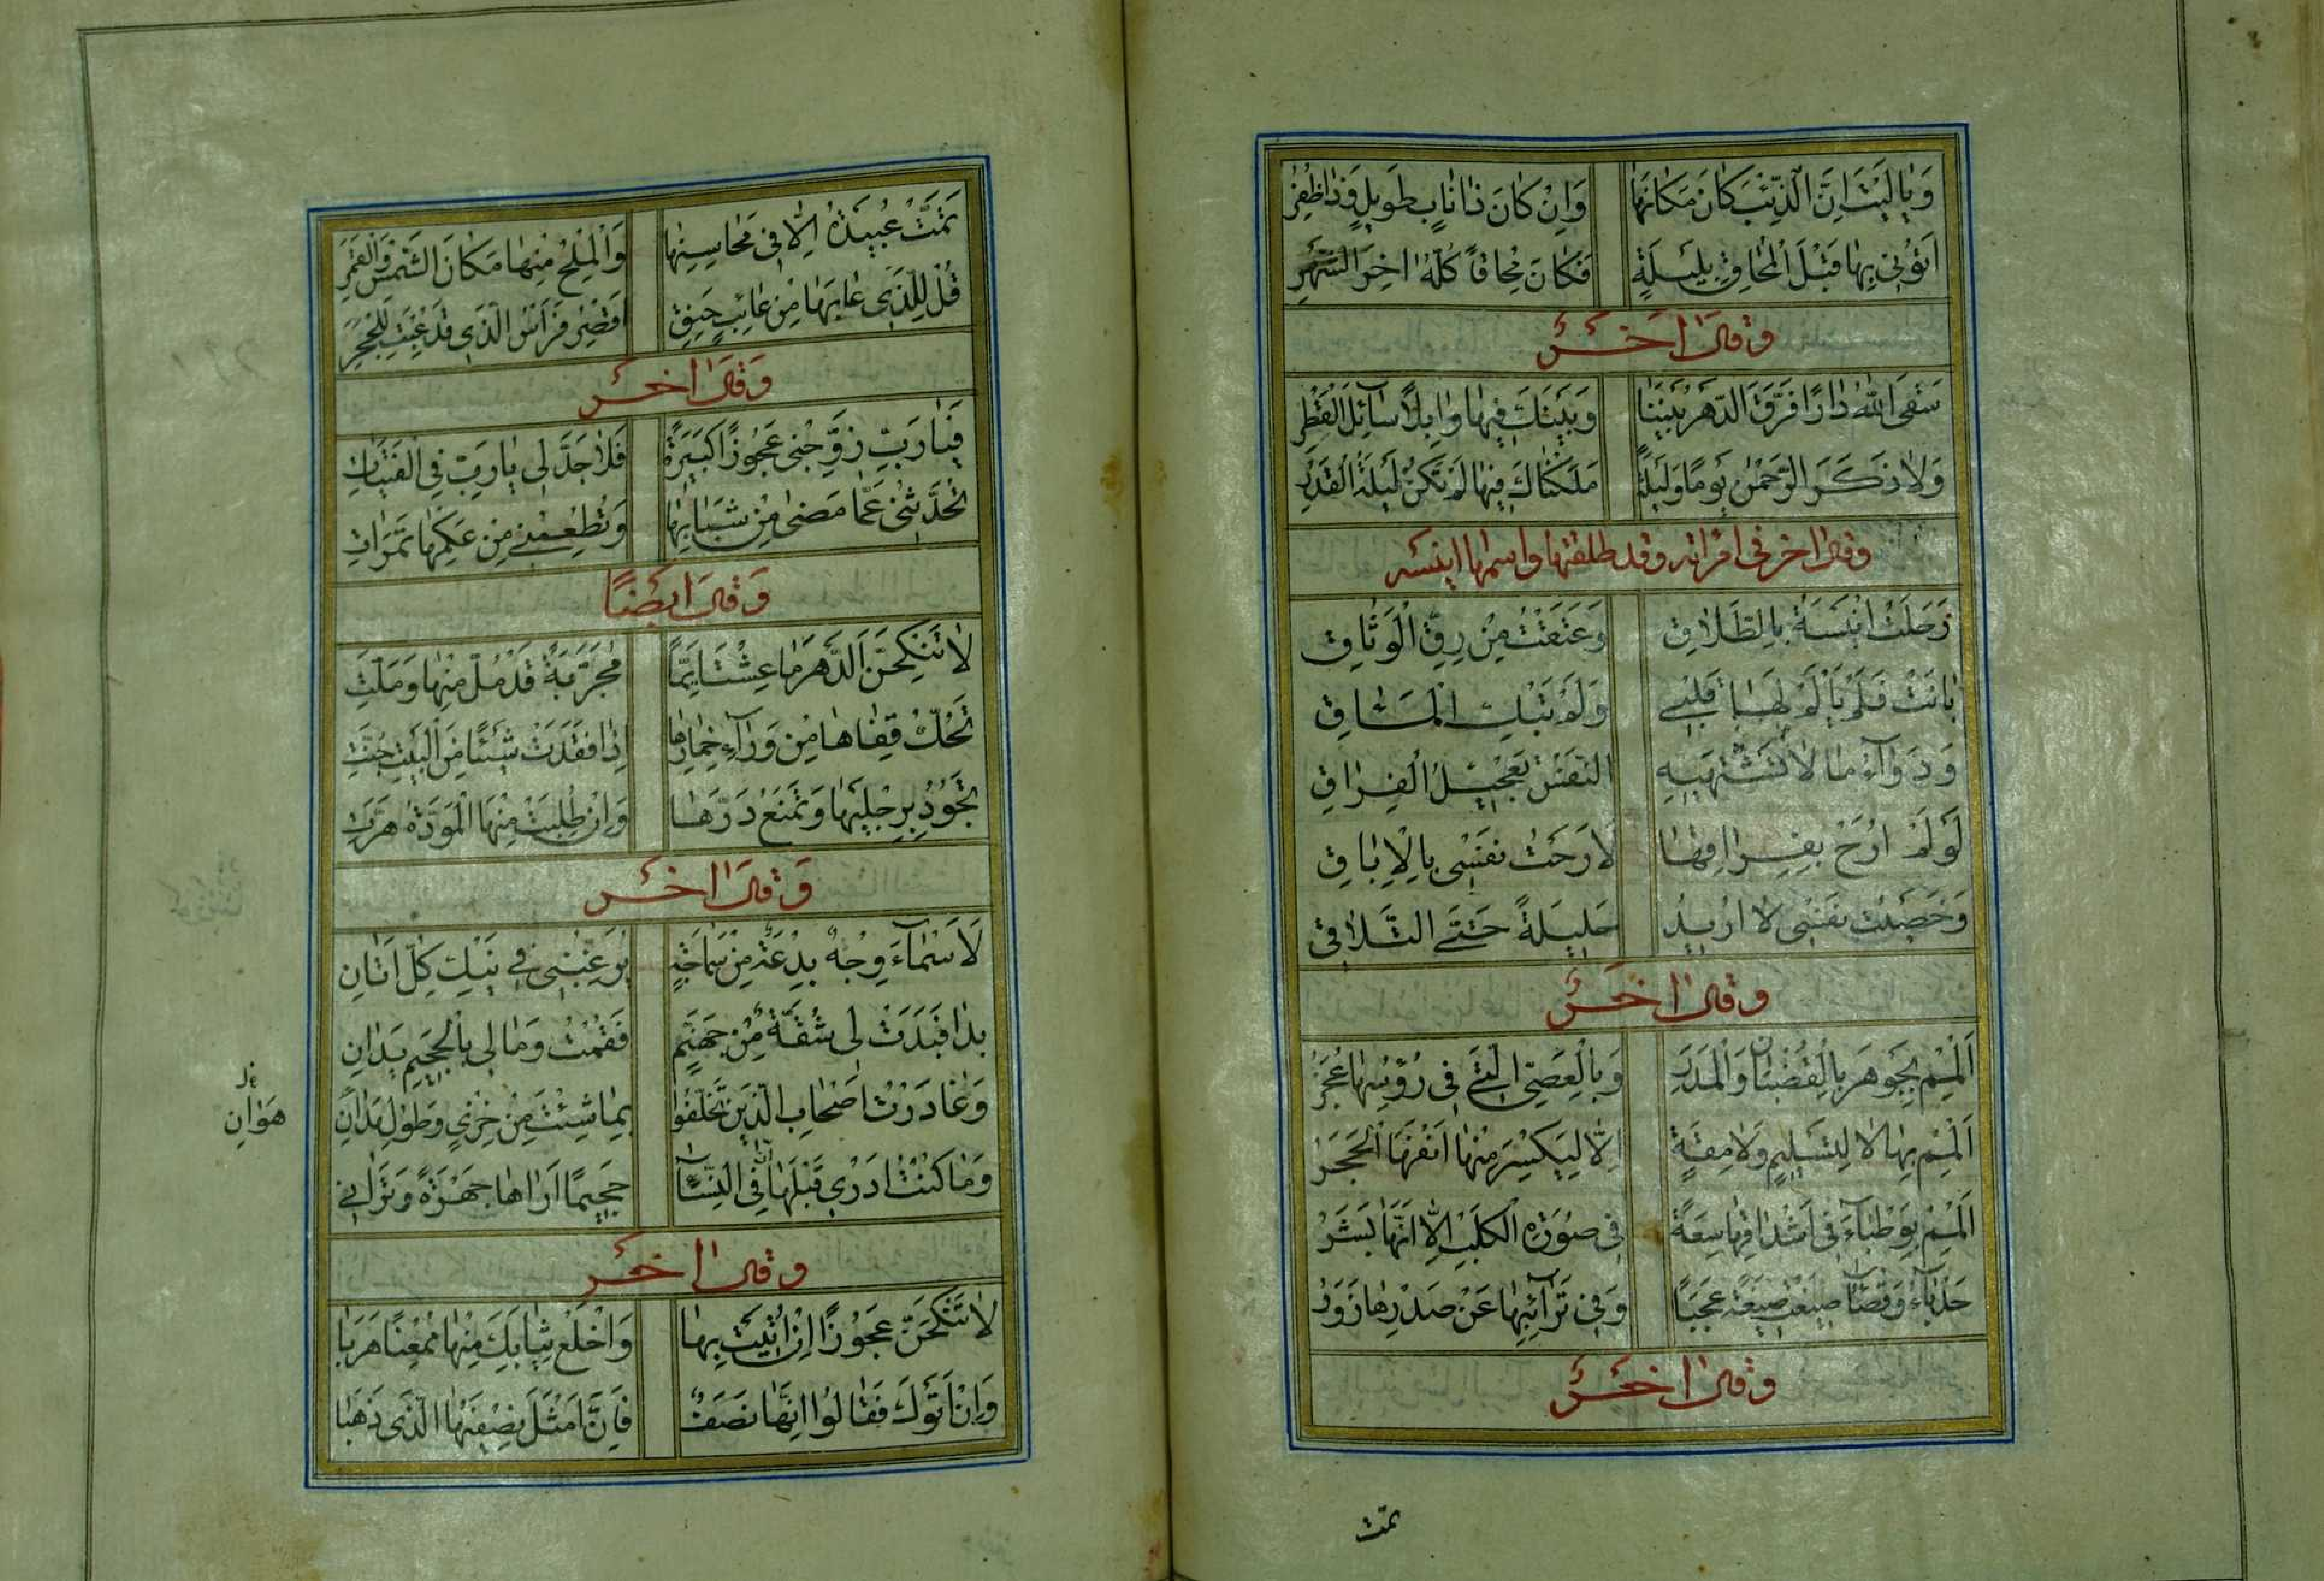 وَيٰا لَيْتَ اِنَّ الذِّئْبَ كَانَ مَكَانَهٰا وَاِنْ كٰانَ ذٰا نٰابٍ طَوِيلٍ وَذٰا ظُفْرٖ
اَتَوْنِى بِهٰا قَبْلَ الْمُحَاقِ بِلَيْلَةٍ فَكَانَ مُحٰاقاً كُلُّهُ اٰخِرَ الشَّهْرِ
وَقٰالَ اٰخَرُ
سَقَى اللّٰهُ دٰارًا فَرَّقَ الدَّهْرُ بَيْنَنٰا وَبَيْنَكَ فِيهٰا وٰابِلًا سٰآئِلَ الْقَطْرِ
وَلاٰ ذَكَرَ الرَّحْمٰنُ يَوْمًا وَلَيْلَةً مَلَكْنٰاكَ فِيهٰا لَمْ تَكُنْ لَيْلَةَ الْقَدْرِ
وقال اخر فى امراته وقد طلقها واسمها انيسه
رَحَلَتْ اُنَيْسَةُ بِالطَّلاٰقِ وَعَتَقَتْ مِنْ رِقِّ الْوَثٰاقِ
بٰانَتْ فَلَمْ يَأْلَمْ لَهٰا قَلْبِى وَلَمْ تَبْكِ الْمَئٰاقِ
وَدَوٰآءُ مٰا لاٰ تَشْتَهِيهِ النَّفْسُ تَعْجِيلُ الْفِرٰاقِ
لَوْ لَمْ اُرَحْ بِفِرٰاقِهٰا لاَرَحْتُ نَفْسِى بِالْاِبٰاقِ
وَخَصَيْتُ نَفْسِى لاٰ اُرِيدُ حَلِيلَةً حَتَّى التَّلاٰقِى
وَقٰالَ اٰخَرُ
اَلْمِمْ بِجَوْهَرَ بِالْقُضْبٰانِ وَالْمَدَرِ وَبِالْعِصِىِّ الَّتِى فِى رُؤْسِهٰا عُجَرُ
اَلْمِمْ بِهٰا لاٰ لِتَسْلِيمٍ وَلاٰ مِقَةٍ اِلاّٰ لِيَكْسِرَ مِنْهٰا اَنْفَهَا الْحَجَرُ
اَلْمِمْ بِوَطْبٰآءَ فِى اَشْدٰاقِهٰا سِعَةٌ فِى صُورَةِ الْكَلْبِ اِلاّٰ اَنَّهٰا بَشَرُ
حَدْبٰآءُ وَقْصٰآءُ صِيغَتْ صِيغَةً عَجَبًا وَفِى تَرٰآئِبِهٰا عَنْ صَدْرِهٰا زَوَرُ
وَقٰالَ اٰخَرُ
تمّت
تَمَّتْ عُبَيْدَةُ اِلاّٰ فِى مَحٰاسِنِهٰا وَالْمِلْحُ مِنْهٰا مَكٰانَ الشَّمْسِ وَالْقَمَرِ
قُلْ لِلَّذِى عٰابَهٰا مِنْ عٰائِبٍ حَنِقٍ اَقْصِرْ فَرَأْسُ الَّذِى قَدْ عِبْتَ لِلْحَجَرِ
وَقٰالَ اٰخَرُ
فَيٰا رَبِّ زَوِّجْنِى عَجُوزًا كَبِيرَةً فَلاٰ جَدَّ لِى يٰا رَبِّ فِى الْفَتَيٰاتِ
تُحَدِّثُنِى عَمّٰا مَضٰى مِنْ شَبٰابِهٰا وَتُطْعِمُنِى مِنْ عَكْمِهٰا تَمَرٰاتِ
وَقٰالَ اَيْضًا
لاٰ تَنْكِحَنَّ الدَّهْرَ مٰا عِشْتَ اَيِّمًا مُجَرَّبَةً قَدْ مُلَّ مِنْهٰا وَمَلَّتْ
تَحُكُّ قَفٰاهٰا مِنْ وَرٰآءِ خِمٰارِهٰا اِذٰا فَقَدَتْ شَيْئًا مِنَ الْبَيْتِ جُنَّتِ
تَجُودُ بِرِجْلَيْهٰا وَتَمْنَعُ دَرَّهٰا وَاِنْ طُلِبَتْ مِنْهَا الْمَوَدَّةُ هَرَّتِ
وَقٰالَ اٰخَرُ
لاَسْمٰآءَ وَجْهٌ بِدْعَةٌ مِنْ سَمٰاجَةٍ يُرَغِّبُنِى فِى نَيْكِ كُلِّ اَتٰانِ
بَدٰا فَبَدَتْ لِى شُقَّةٌ مِنْ جَهَنَّمٍ فَقُمْتُ وَمٰا لِى بِالْجَحِيمِ يَدٰانِ
وَغٰادَرْتُ اَصْحٰابِى الَّذِينَ تَخَلَّفُوا بِمٰا شِئْتَ مِنْ خِزْىٍ وَطُولِ هَوٰانِ
هَوٰانِ
وَمٰا كُنْتُ اَدْرِى قَبْلَهٰا اَنَّ فِى النِّسٰآءِ جَحِيمًا اَرٰاهٰا جَهْرَةً وَتَرٰانِى
وَقٰالَ اٰخَرُ
لاٰ تَنْكِحَنَّ عَجُوزًا اِنْ اُتِيتَ بِهٰا وَاخْلَعْ ثِيٰابَكَ مِنْهٰا مُمْعِنًا هَرَبٰا
وَاِنْ اَتَوْكَ فَقٰالُوا اِنَّهٰا نَصَفٌ فَاِنَّ اَمْثَلَ نِصْفَيْهَا الَّذِى ذَهَبٰا